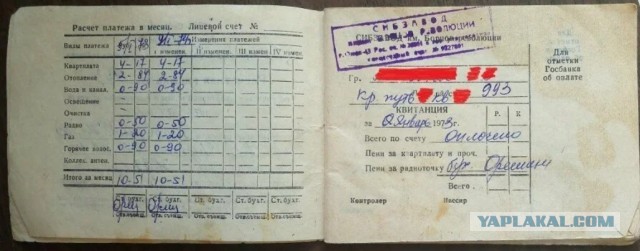 Расчет платежа в месяц. Лицевой счет №
Виды платежа
Изменения платежей
I изменен.
II изменен.
III измен.
IV измен.
Квартплата 4-17 4-17
Отопление 2-84 2-84
Вода и канал. 0-90 0-90
Освещение
Очистка
Радио 0-50 0-50
Газ 1-20 1-20
Горячее водос. 0-90 0-90
Коллек. антен.
Итого за месяц 10-51 10-51
Ст. бухг. Ст. бухг. Ст. бухг. Ст. бухг. Ст. бухг.
СИБЗАВОД
СИБЗАВОД им. Борцов революции
Гр.
Кр. путь кв 993
КВИТАНЦИЯ
за Январь 1973г.
Р. К.
Всего по счету Оплочено
Пени за квартплату и проч.
Пени за радиоточку бух.
Всего
Контролер Кассир
Для
отметки
Госбанка
об оплате
YAPLAKAL.COM